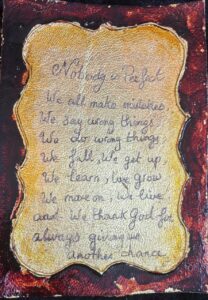 Nobody is Perfect
We all make mistakes
We say wrong things
We do wrong things
We fall, We get up
We learn, We grow
We move on, We live
and We thank God for
always giving us
another chance